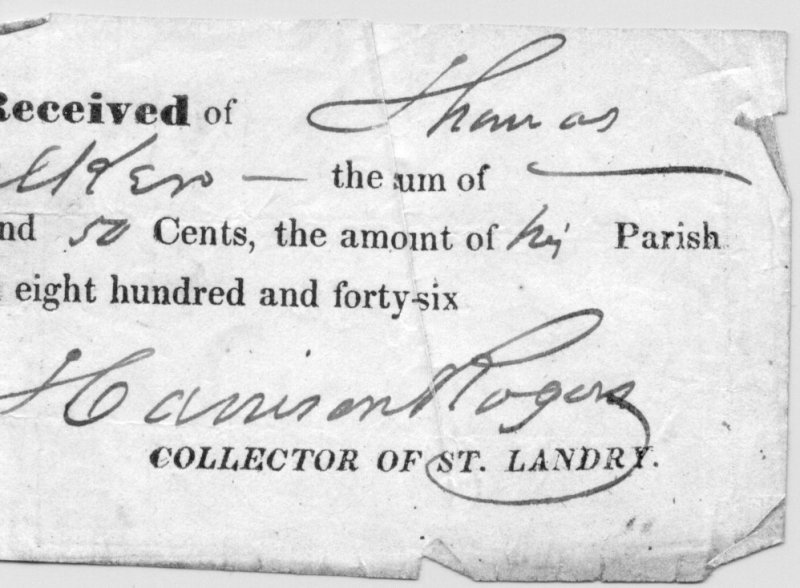 Received of Thomas
the sum of
nd 50 Cents, the amount of his Parish
eight hundred and forty-six
Harrison Rogers
COLLECTOR OF ST. LANDRY.